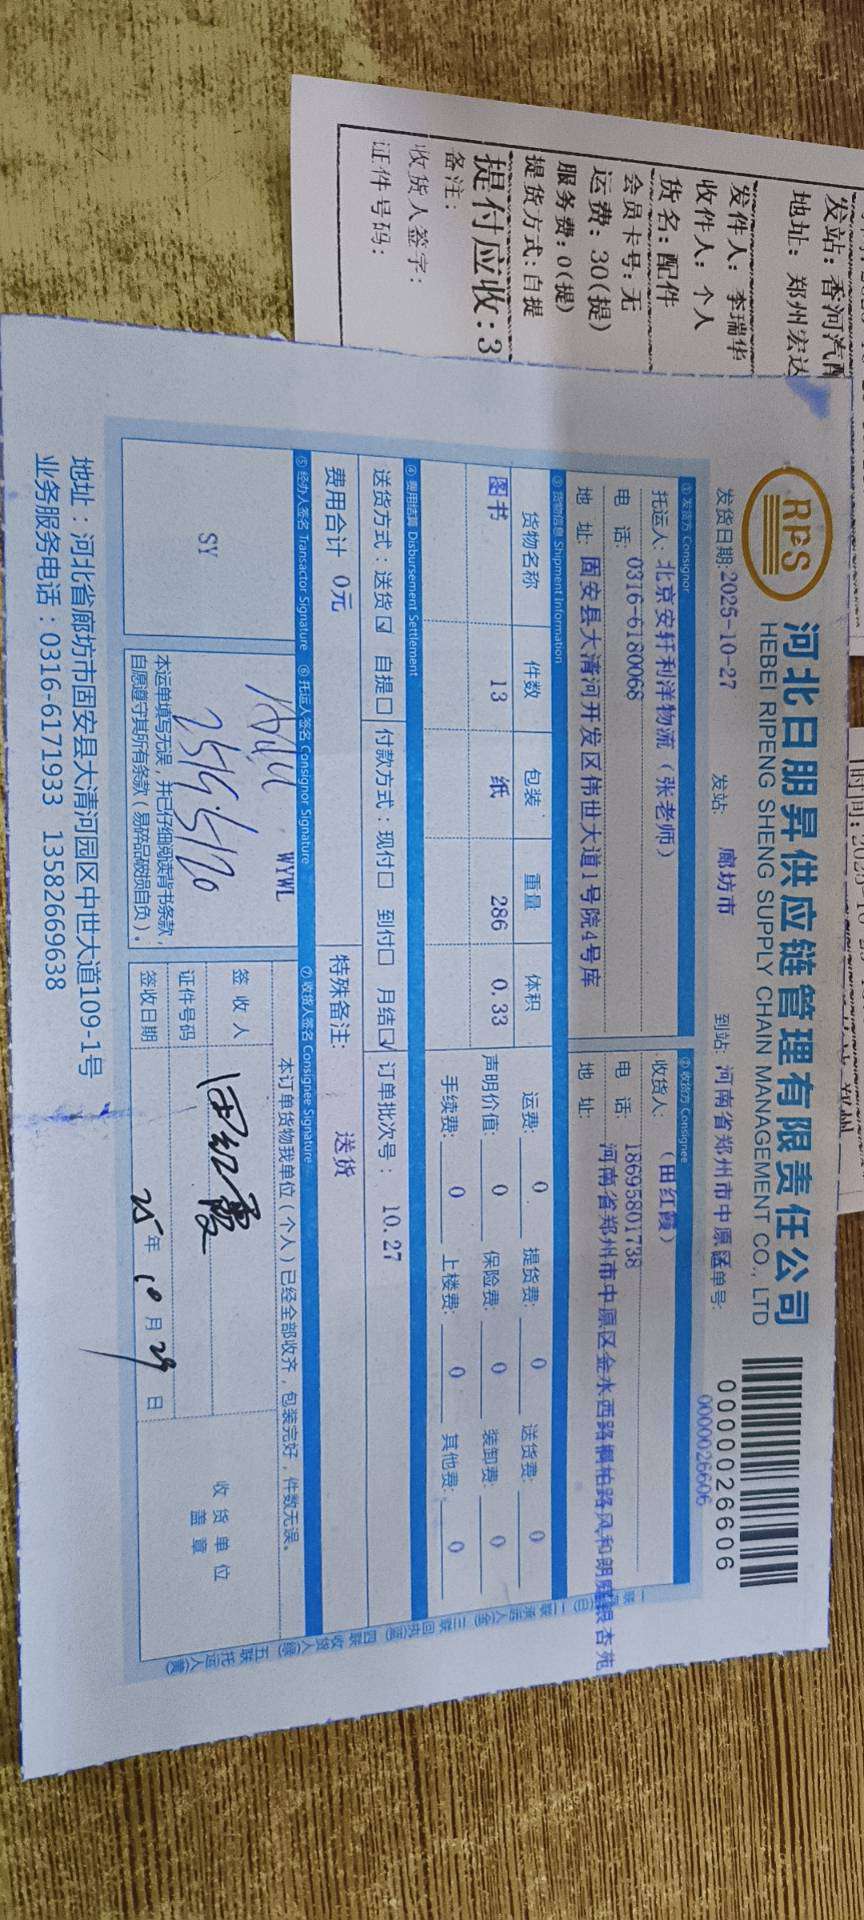 发站：香河汽配
地址：郑州宏达
发件人：李瑞华
收件人：个人
货名：配件
会员卡号：无
运费：30(提)
服务费：0(提)
提货方式：自提
提付应收：3
备注：
收货人签字：
证件号码：
RPS
河北日朋昇供应链管理有限责任公司
HEBEI RIPENG SHENG SUPPLY CHAIN MANAGEMENT CO., LTD
0000026606
发货日期：2025-10-27 发站：廊坊市 到站：河南省郑州市中原区 运单号：0000026606
① 发货方 Consignor
托运人：北京安轩利洋物流（张老师）
电 话：0316-6180068
地 址：固安县大清河开发区伟世大道1号院4号库
② 收货方 Consignee
收货人：（田红霞）
电 话：18695801738
地 址：河南省郑州市中原区金水西路桐柏路风和朗庭银杏苑
③ 货物信息 Shipment Information
货物名称 件数 包装 重量 体积
图书 13 纸 286 0.33
运费：0 提货费：0 送货费：0
声明价值：0 保险费：0 装卸费：0
手续费：0 上楼费：0 其他费：0
④ 费用结算 Disbursement Settlement
送货方式：送货☑ 自提□ 付款方式：现付□ 到付□ 月结☑ 订单批次号：10.27
费用合计 0元 特殊备注： 送货
⑤ 经办人签名 Transactor Signature ⑥ 托运人签名 Consignor Signature ⑦ 收货人签名 Consignee Signature
SY
WYWL
本运单填写无误，并已仔细阅读背书条款，
自愿遵守其所有条款（易碎品破损自负）。
本订单货物我单位（个人）已经全部收齐，包装完好，件数无误。
签 收 人 田红霞
证件号码
签收日期 25年10月29日
收货单位
盖章
地址：河北省廊坊市固安县大清河园区中世大道109-1号
业务服务电话：0316-6171933 13582669638